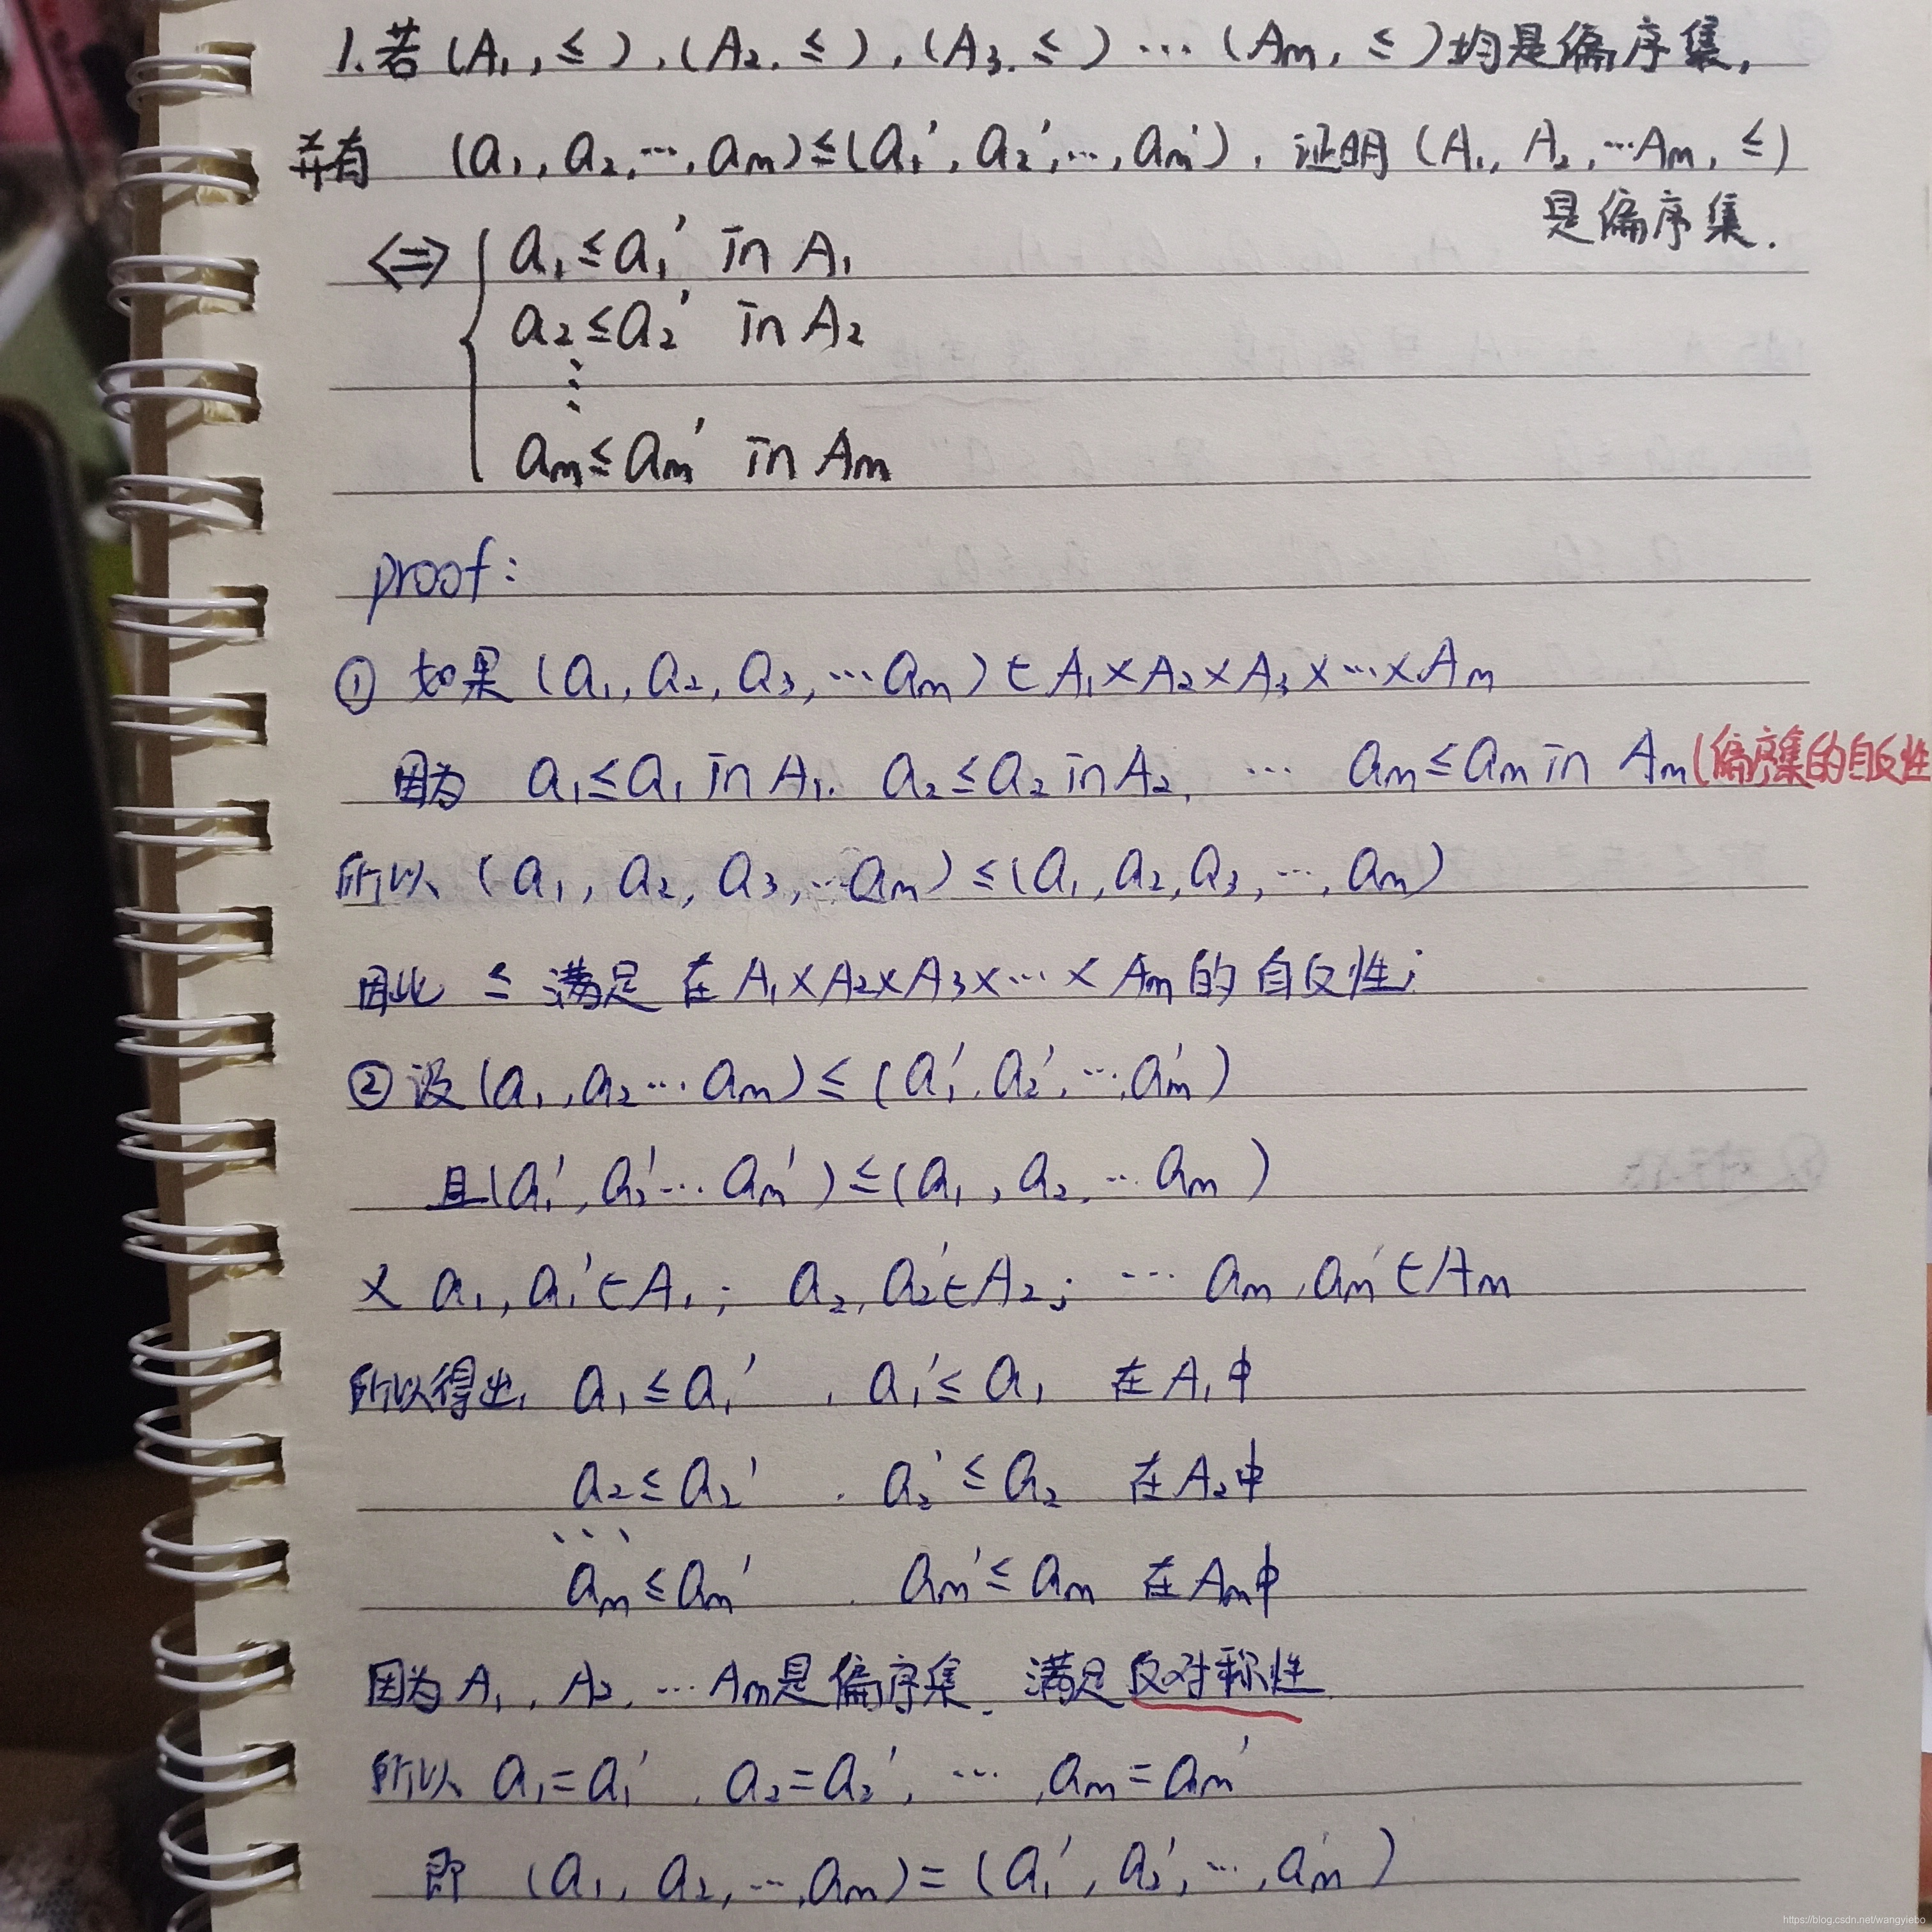 1.若(A₁,≤),(A₂,≤),(A₃,≤)···(Am,≤)均是偏序集,
并有 (a₁,a₂,···,am)≤(a₁',a₂',···,am'),证明(A₁,A₂,···Am,≤)
是偏序集.
⇔ { a₁≤a₁' in A₁
a₂≤a₂' in A₂
⋮
am≤am' in Am
proof:
① 如果(a₁,a₂,a₃,···am)∈A₁×A₂×A₃×···×Am
因为 a₁≤a₁ in A₁. a₂≤a₂ in A₂, ··· am≤am in Am(偏序集的自反性
所以(a₁,a₂,a₃,···am)≤(a₁,a₂,a₃,···,am)
因此 ≤ 满足 在A₁×A₂×A₃×···×Am的自反性;
② 设(a₁,a₂···am)≤(a₁',a₂',···,am')
且(a₁',a₂'···am')≤(a₁,a₂,···am)
又 a₁,a₁'∈A₁; a₂,a₂'∈A₂; ··· am,am'∈Am
所以得出, a₁≤a₁' , a₁'≤a₁ 在A₁中
a₂≤a₂' , a₂'≤a₂ 在A₂中
···
am≤am' . am'≤am 在Am中
因为A₁,A₂,···Am是偏序集. 满足反对称性
所以 a₁=a₁' , a₂=a₂', ··· ,am=am'
即 (a₁,a₂,···,am)=(a₁',a₂',···,am')
https://blog.csdn.net/wangyiebo